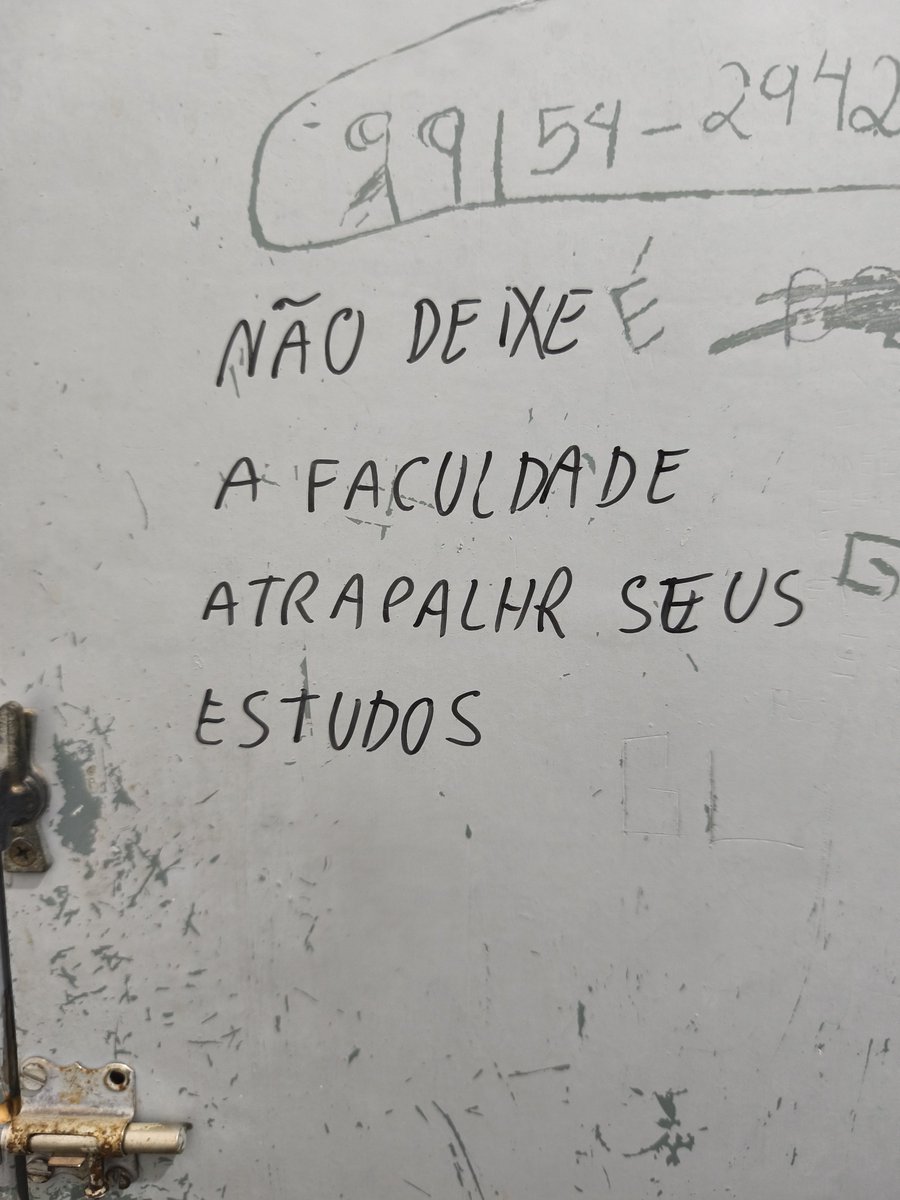 99154-2942
NÃO DEIXE É
A FACULDADE
ATRAPALHR SEUS
ESTUDOS
GL